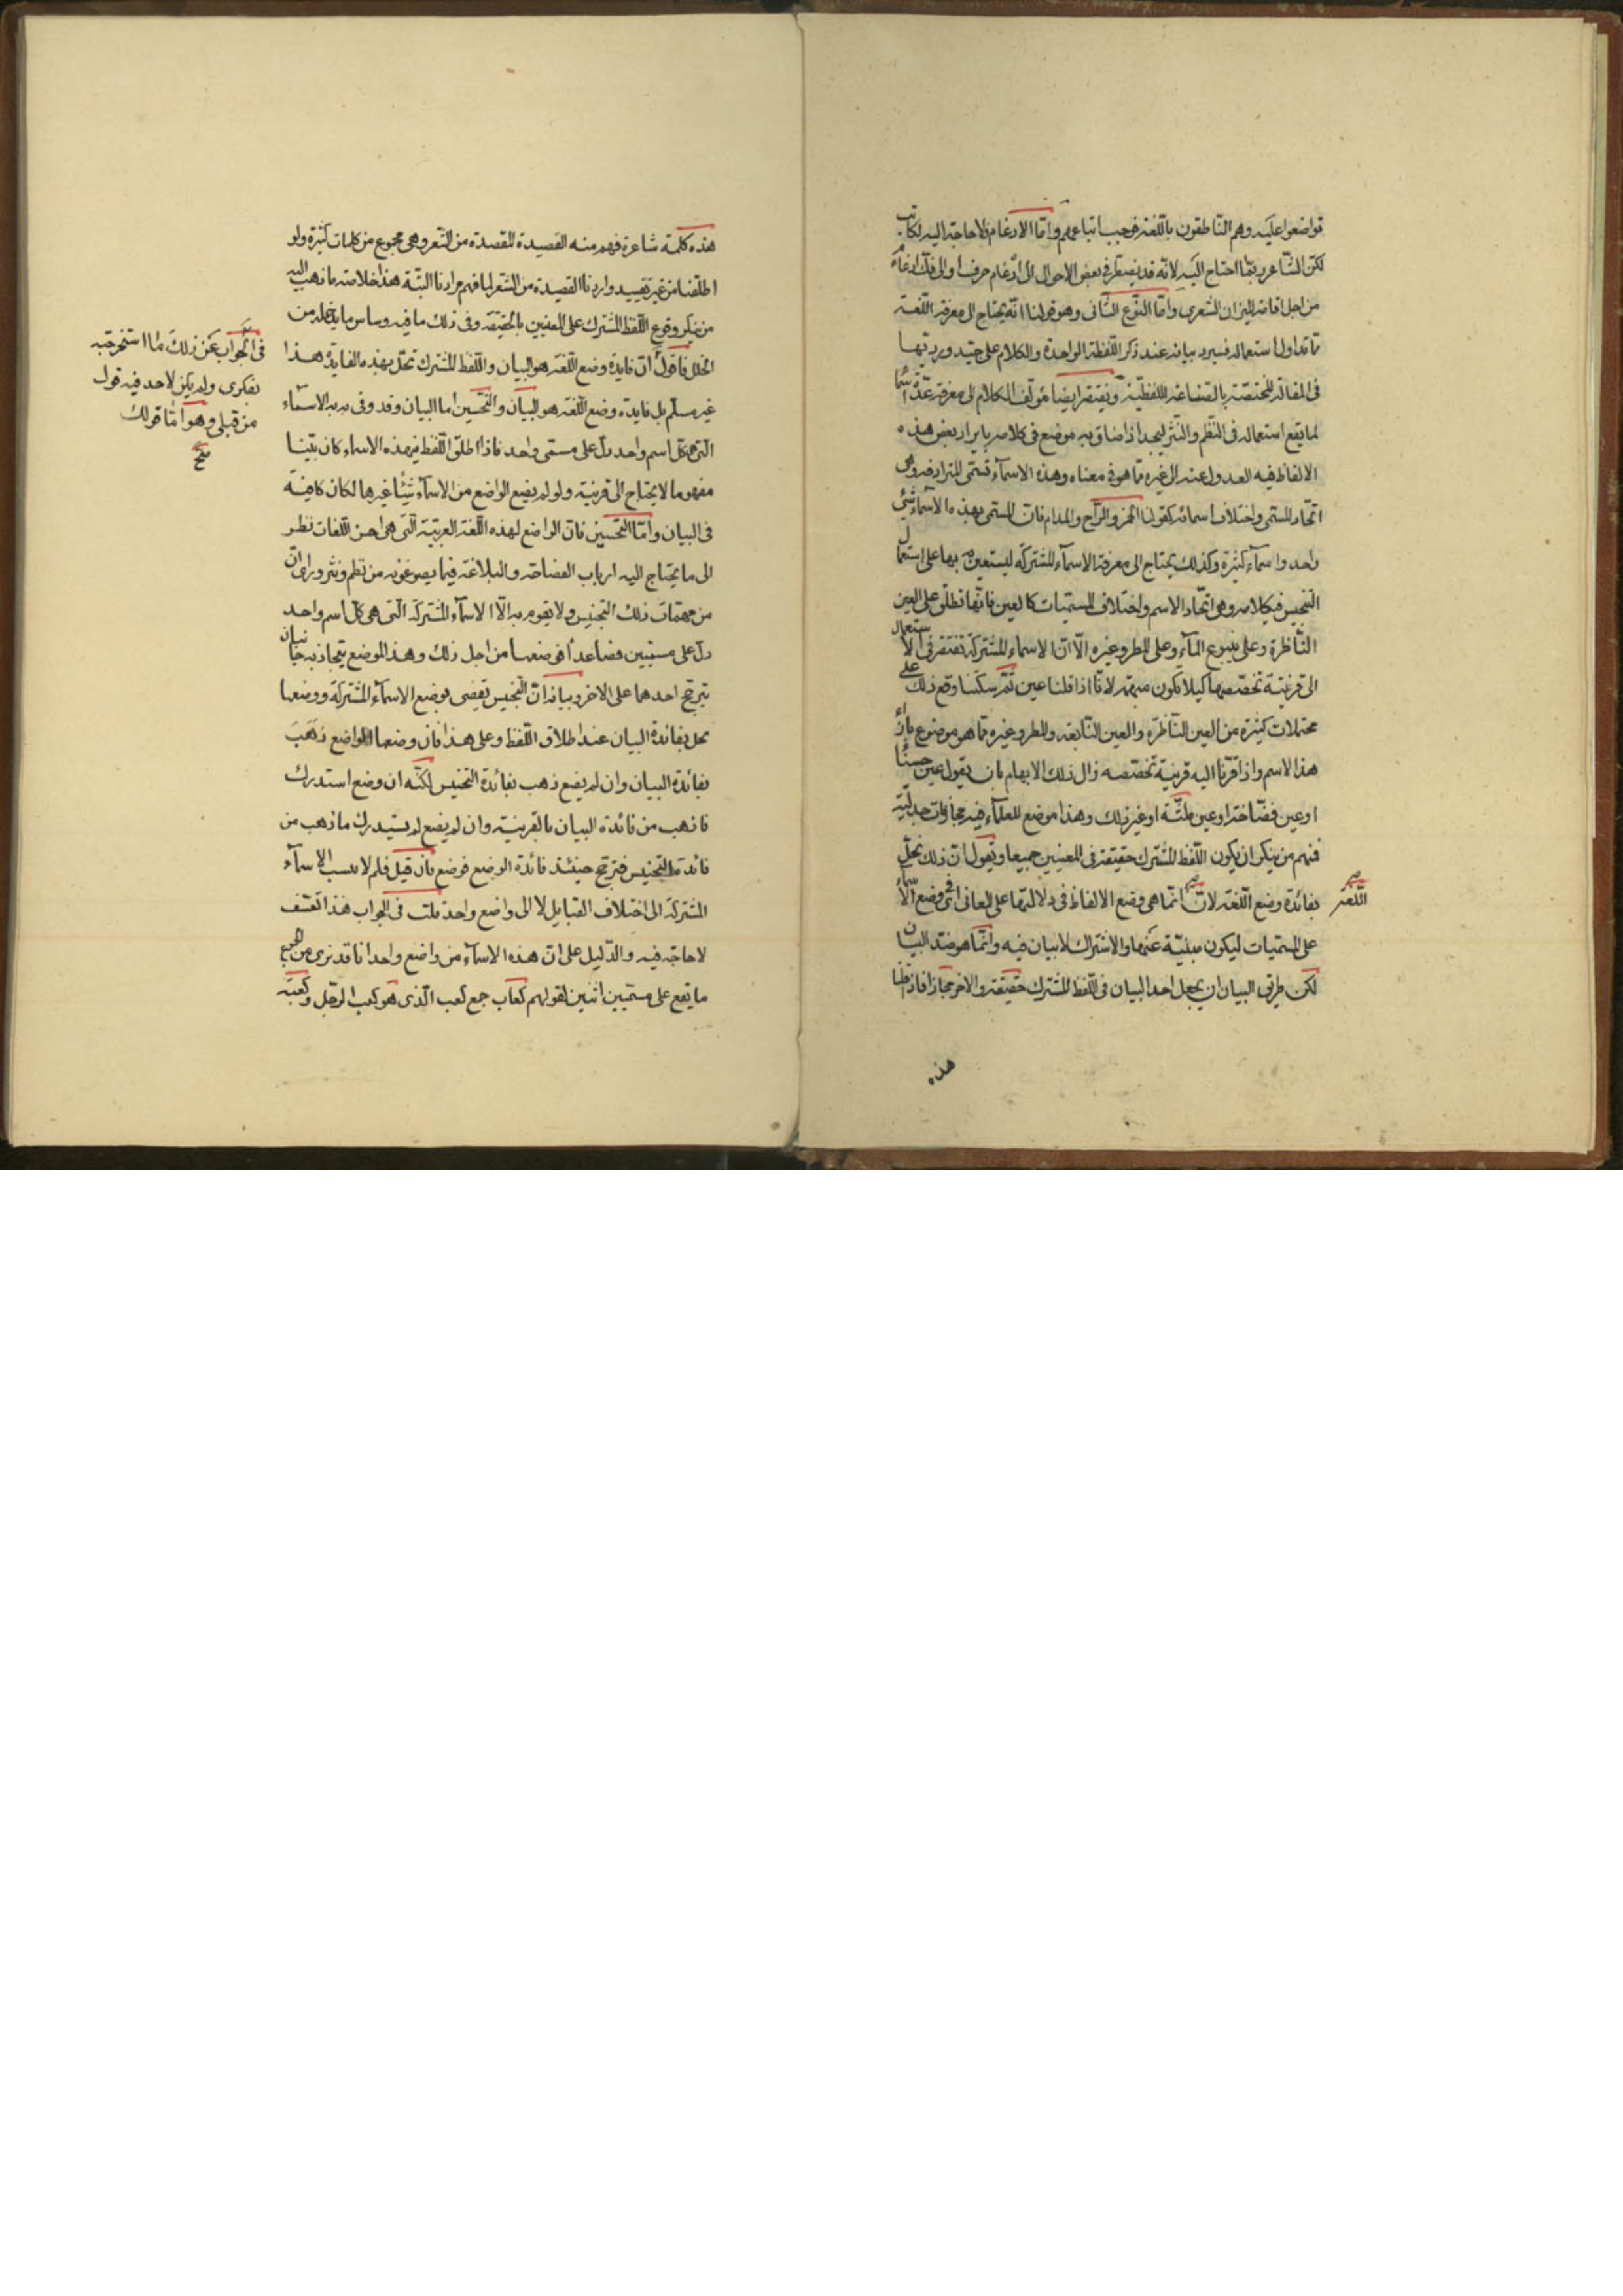 تواضعوا عليه وهم الناطقون باللغة فوجب اتباعهم وامّا الادغام فلا حاجة اليه لكاتب
لكنّ الشاعر ربّما احتاج اليه لانه قد يضطرّ في بعض الاحوال الى ادّغام حرف او الى فكّ ادغام
من اجل اقامة الميزان الشعرى وامّا النّوع الثّانى وهو قولنا انّه يحتاج الى معرفة اللّغة
ممّا تداول استعماله فسيرد بيانه عند ذكر اللّفظة الواحدة والكلام على جيّد ورديّها
فى المقالة المختصّة بالصّناعة اللفظيّة ويفتقر ايضا مؤلّف الكلام الى معرفة عدّة اسما
لما يقع استعماله فى النّظم والنّثر ليجد اذا ضاق به موضع فى كلامه بايراد بعض هذه
الالفاظ فيه العدول عنه الى غيره ممّا هو فى معناه وهذه الاسمآء تسمّى المترادفه وهى
اتّحاد المسمّى واختلاف اسمائه كقولنا الخمر والرّاح والمدام فانّ المسمّى بهذه الاسمآء شئ
واحد واسمآء كثيرة وكذلك يحتاج الى معرفة الاسمآء المشتركة ليستعين بها على استعمال
التّجنيس فى كلامه وهى اتّحاد الاسم واختلاف المسمّيات كالعين فانّها تطلق على العين
النّاظرة وعلى ينبوع المآء وعلى المطر وغيره الّا انّ الاسماء المشتركة تفتقر فى الاستعمال
الى قرينة تخصّصها كيلا تكون مبهمة لانّا اذا قلنا عين ثمّ سكتنا وقع ذلك على
محتملات كثيرة من العين النّاظرة والعين النّابعة والمطر وغيره ممّا هو موضوع بازاء
هذا الاسم واذا قرنّا اليه قرينة تخصّصه زال ذلك الابهام بان يقول عين حسنا
او عين نضّاخة او عين ملثّة او غير ذلك وهذا موضع للعلمآء فيه مجاذبات جدليّة
فمنهم من ينكر ان يكون اللّفظ المشترك حقيقة فى المعنيين جميعا ويقول انّ ذلك يخلّ
بفائدة وضع اللّغة لانّ انّما هى وضع الالفاظ فى دلالتها على المعانى اى وضع الاسماء
اللّغة
على المسمّيات ليكون مبنيّة عنها والاشتراك لا بيان فيه وانّما هو ضدّ البيان
لكن طريق البيان ان يجعل احد البيان فى اللّفظ المشترك حقيقة والاخر مجازا فاذا قلنا
هذه
هذه كلمة شاعرة فهم منه القصيدة المقصدة من الشعر وهى مجموع من كلمات كثيرة ولو
اطلقنا من غير تقييد واردنا القصيدة من الشعر لما فهم مرادنا البتّة هذا خلاصة ما ذهب اليه
من ينكر وقوع اللّفظ المشترك على المعنيين بالحقيقة وفى ذلك ما فيه وساس ما يدخله من
الخلل فاقول انّ فايدة وضع اللّغة هو البيان واللّفظ المشترك تخلّ بهذه الفايدة هذا
فى الجواب عن ذلك ما استخرجته
بفكرى ولم يكن لاحد فيه قول
من قبلى وهو امّا قولك
صح
غير مسلّم بل فايدة وضع اللّغة هو البيان والتّحسين اما البيان فقد وفى به الاسمآء
الّتى هى كلّ اسم واحد دلّ على مسمّى واحد فاذا اطلق اللّفظ من هذه الاسماء كان بيّنا
مفهوما لا يحتاج الى قرينة ولو لم يضع الواضع من الاسمآء شيئا غيرها لكان كافية
فى البيان وامّا التّحسين فانّ الواضع لهذه اللّغة العربيّة الّتى هى احسن اللّغات نظر
الى ما يحتاج اليه ارباب الفصاحة والبلاغة فيما يصوغونه من نظم ونثر وراى انّ
من مهمّات ذلك التجنيس ولا يقوم به الّا الاسمآء المشتركة الّتى هى كلّ اسم واحد
دلّ على مسمّيين فصاعدا فوضعها من اجل ذلك وهذا الموضع يتجاذبه جانبان
يترجّح احدهما على الاخر وبيانه انّ التّجنيس يقضى بوضع الاسمآء المشتركة ووضعها
مخل بفائدة البيان عند اطلاق اللّفظ وعلى هذا فان وضعها الواضع ذهب
بفائدة البيان وان لم يضع ذهب بفائدة التجنيس لكنّه ان وضع استدرك
ما ذهب من فائدة البيان بالقرينة وان لم يضع لم يستدرك ما ذهب من
فائدة التّجنيس فترجّح حينئذ فائدة الوضع فوضع فان قيل فلم لا تنسب الاسمآء
المشتركة الى اختلاف القبايل لا الى واضع واحد قلت فى الجواب هذا تعسّف
لا حاجة فيه والدّليل على انّ هذه الاسمآء من واضع واحد انا قد نرى من الجمع
ما يقع على مسمّيين اثنين لقولهم كعاب جمع كعب الّذى هو كعب الرّجل وكعبه